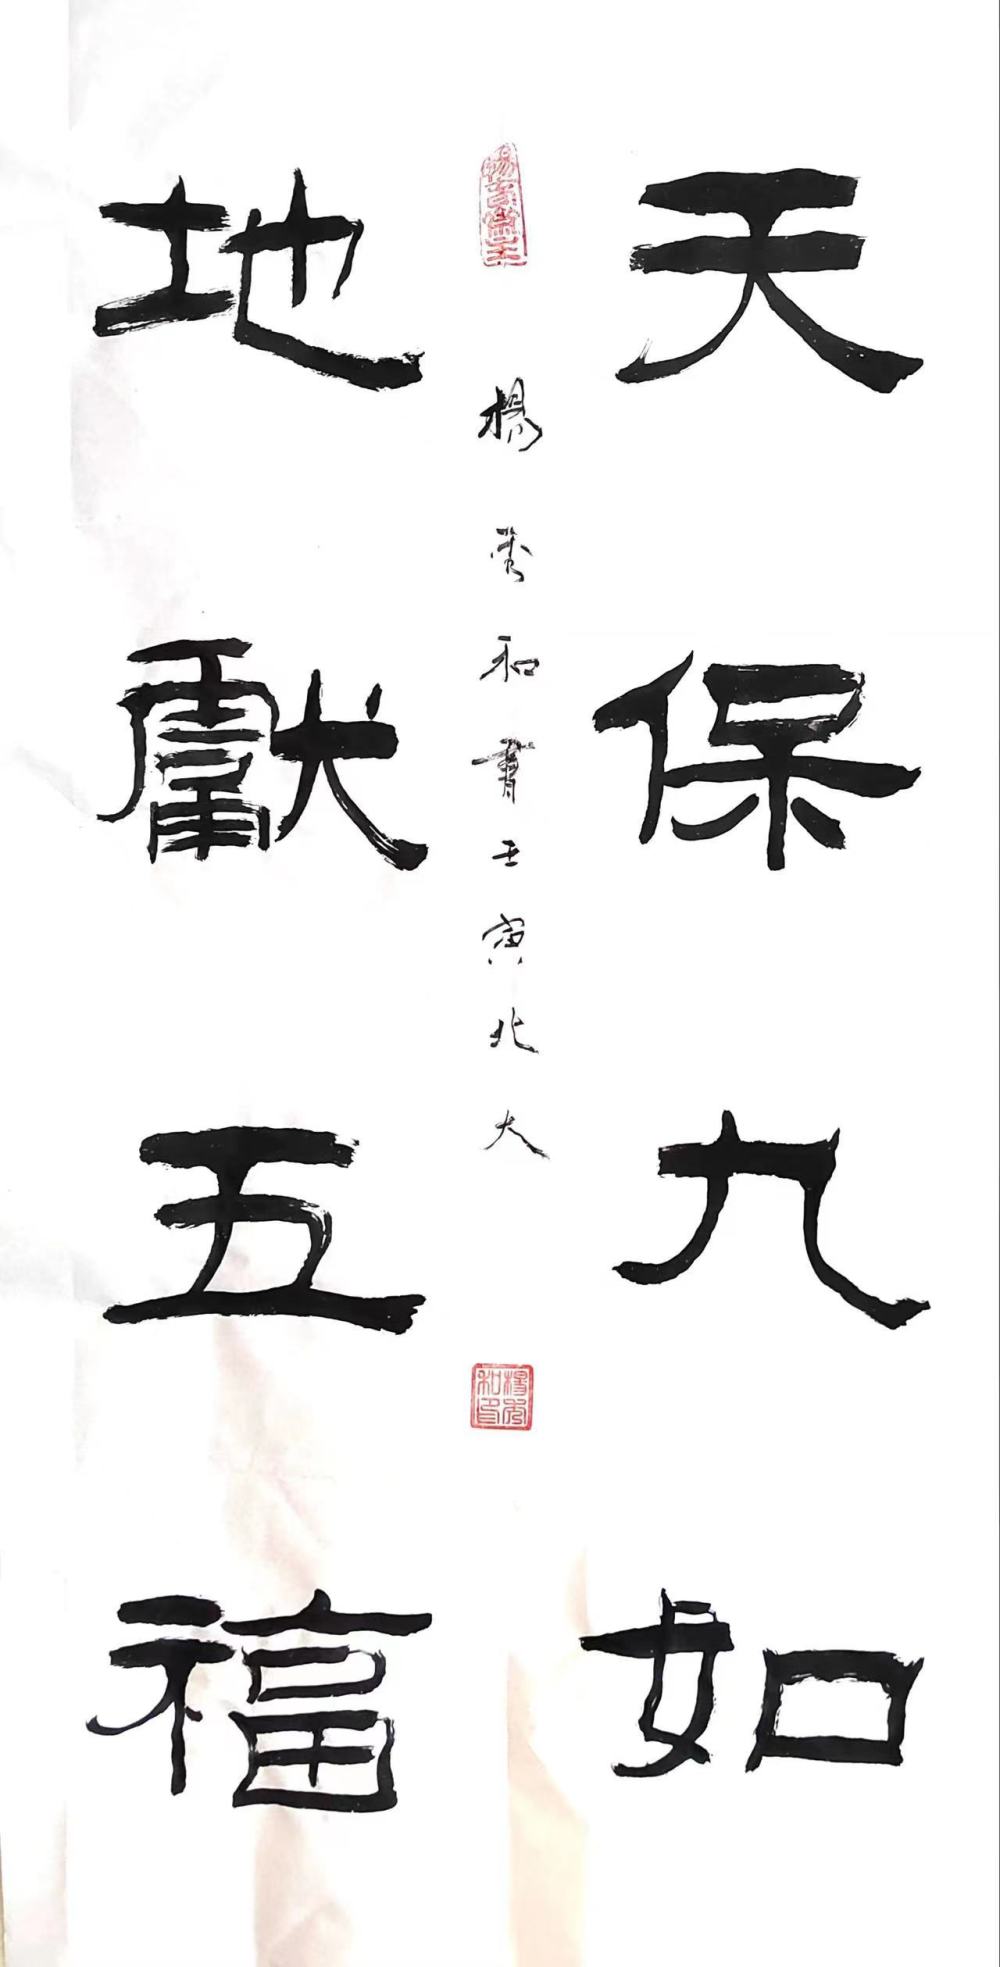 天保九如
地獻五福
楊秀和書壬寅北大
楊秀和印